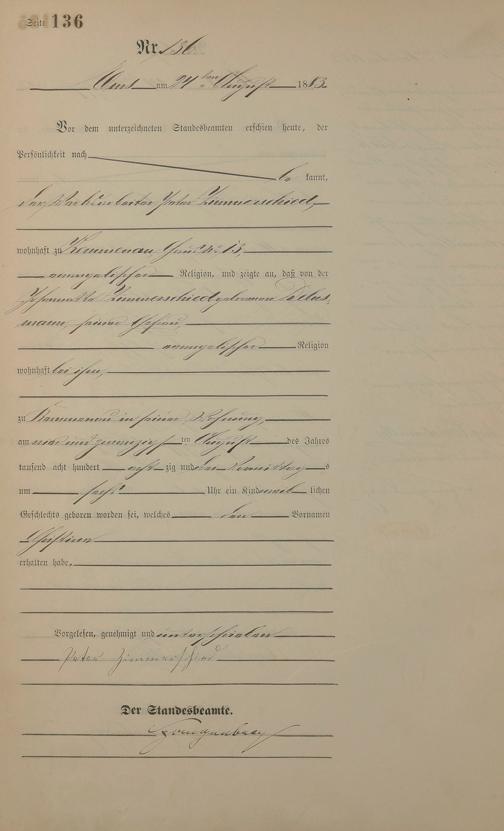 Seite 136
Nr. 136
Ems am 24 ten August 1883
Vor dem unterzeichneten Standesbeamten erschien heute, der
Persönlichkeit nach
be kannt,
der Peter Zimmerschied,
wohnhaft zu Kemmenau Haus No 13,
evangelischer Religion, und zeigte an, daß von der
Zimmerschied geborenen
mann, seiner Ehefrau,
evangelischer Religion
wohnhaft bei ihm,
zu Kemmenau in seiner Wohnung,
am ein und zwanzig ten August des Jahres
tausend acht hundert acht zig und drei Vormittags
um sechs Uhr ein Kind lichen
Geschlechts geboren worden sei, welches den Vornamen
erhalten habe.
Vorgelesen, genehmigt und unterschrieben
Peter Zimmerschied
Der Standesbeamte.